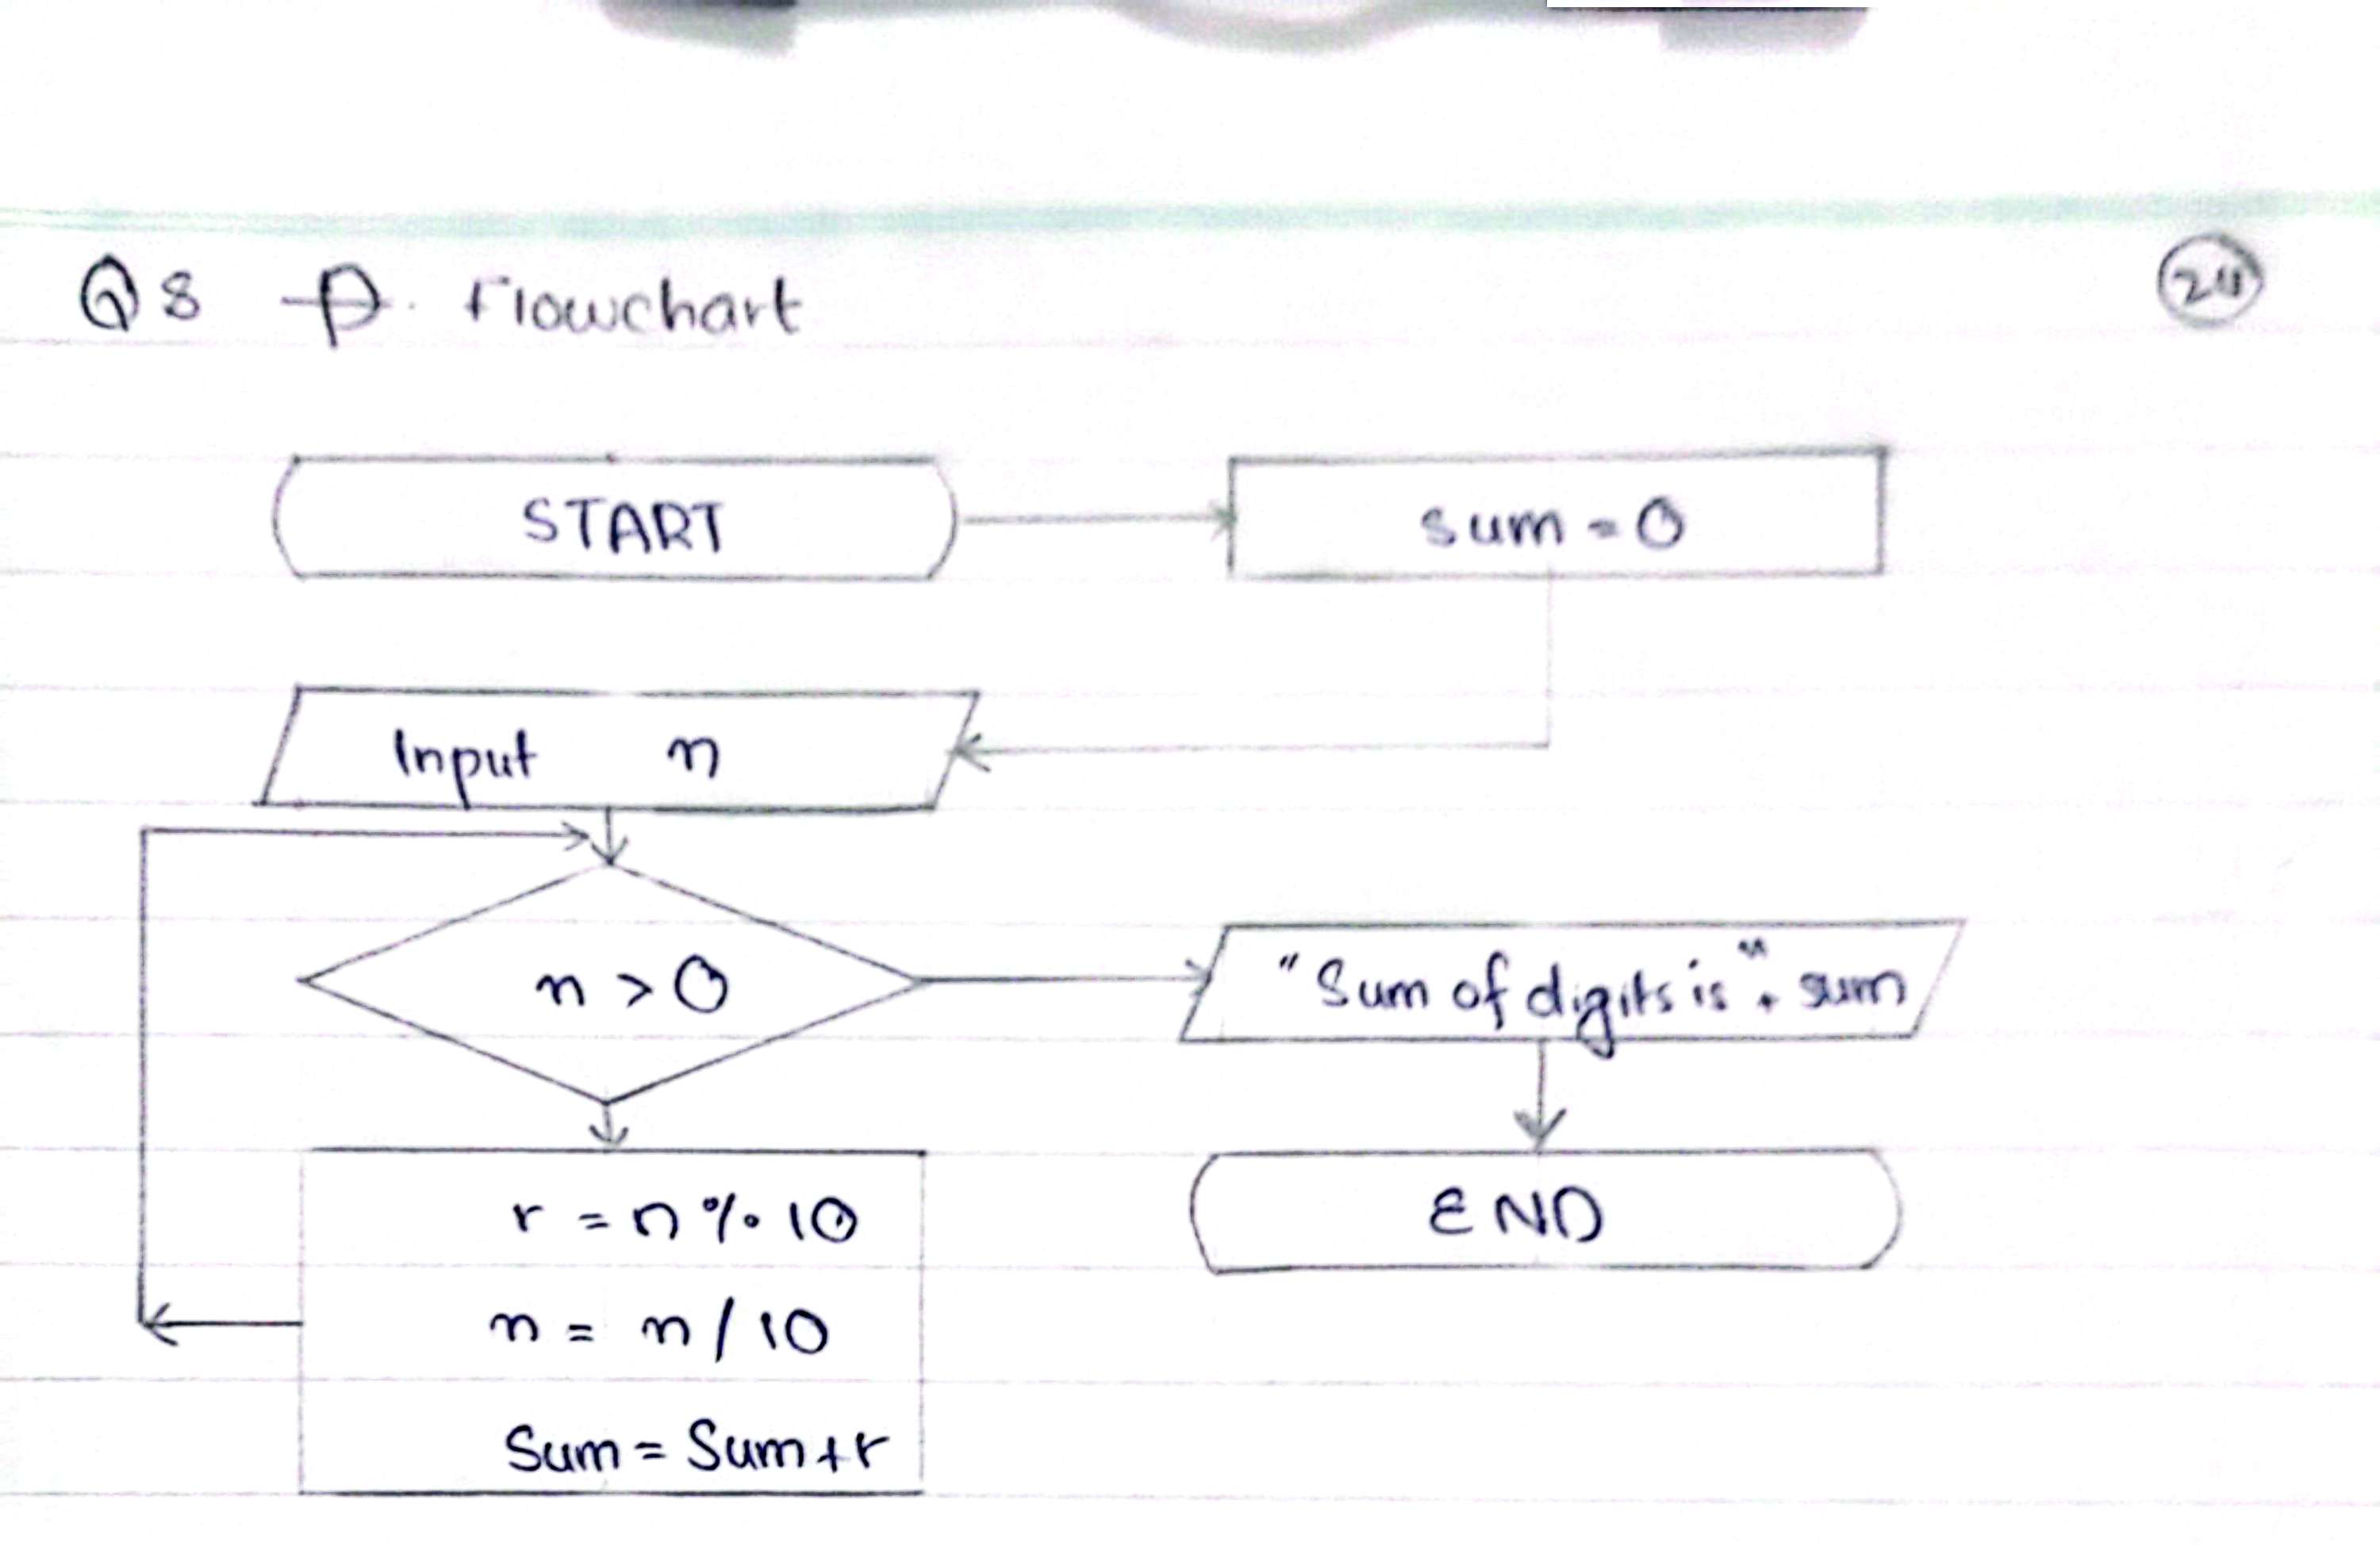 Q8 Flowchart
START
sum = 0
Input n
n > 0
"Sum of digits is" + sum
r = n % 10
END
n = n / 10
Sum = Sum + r